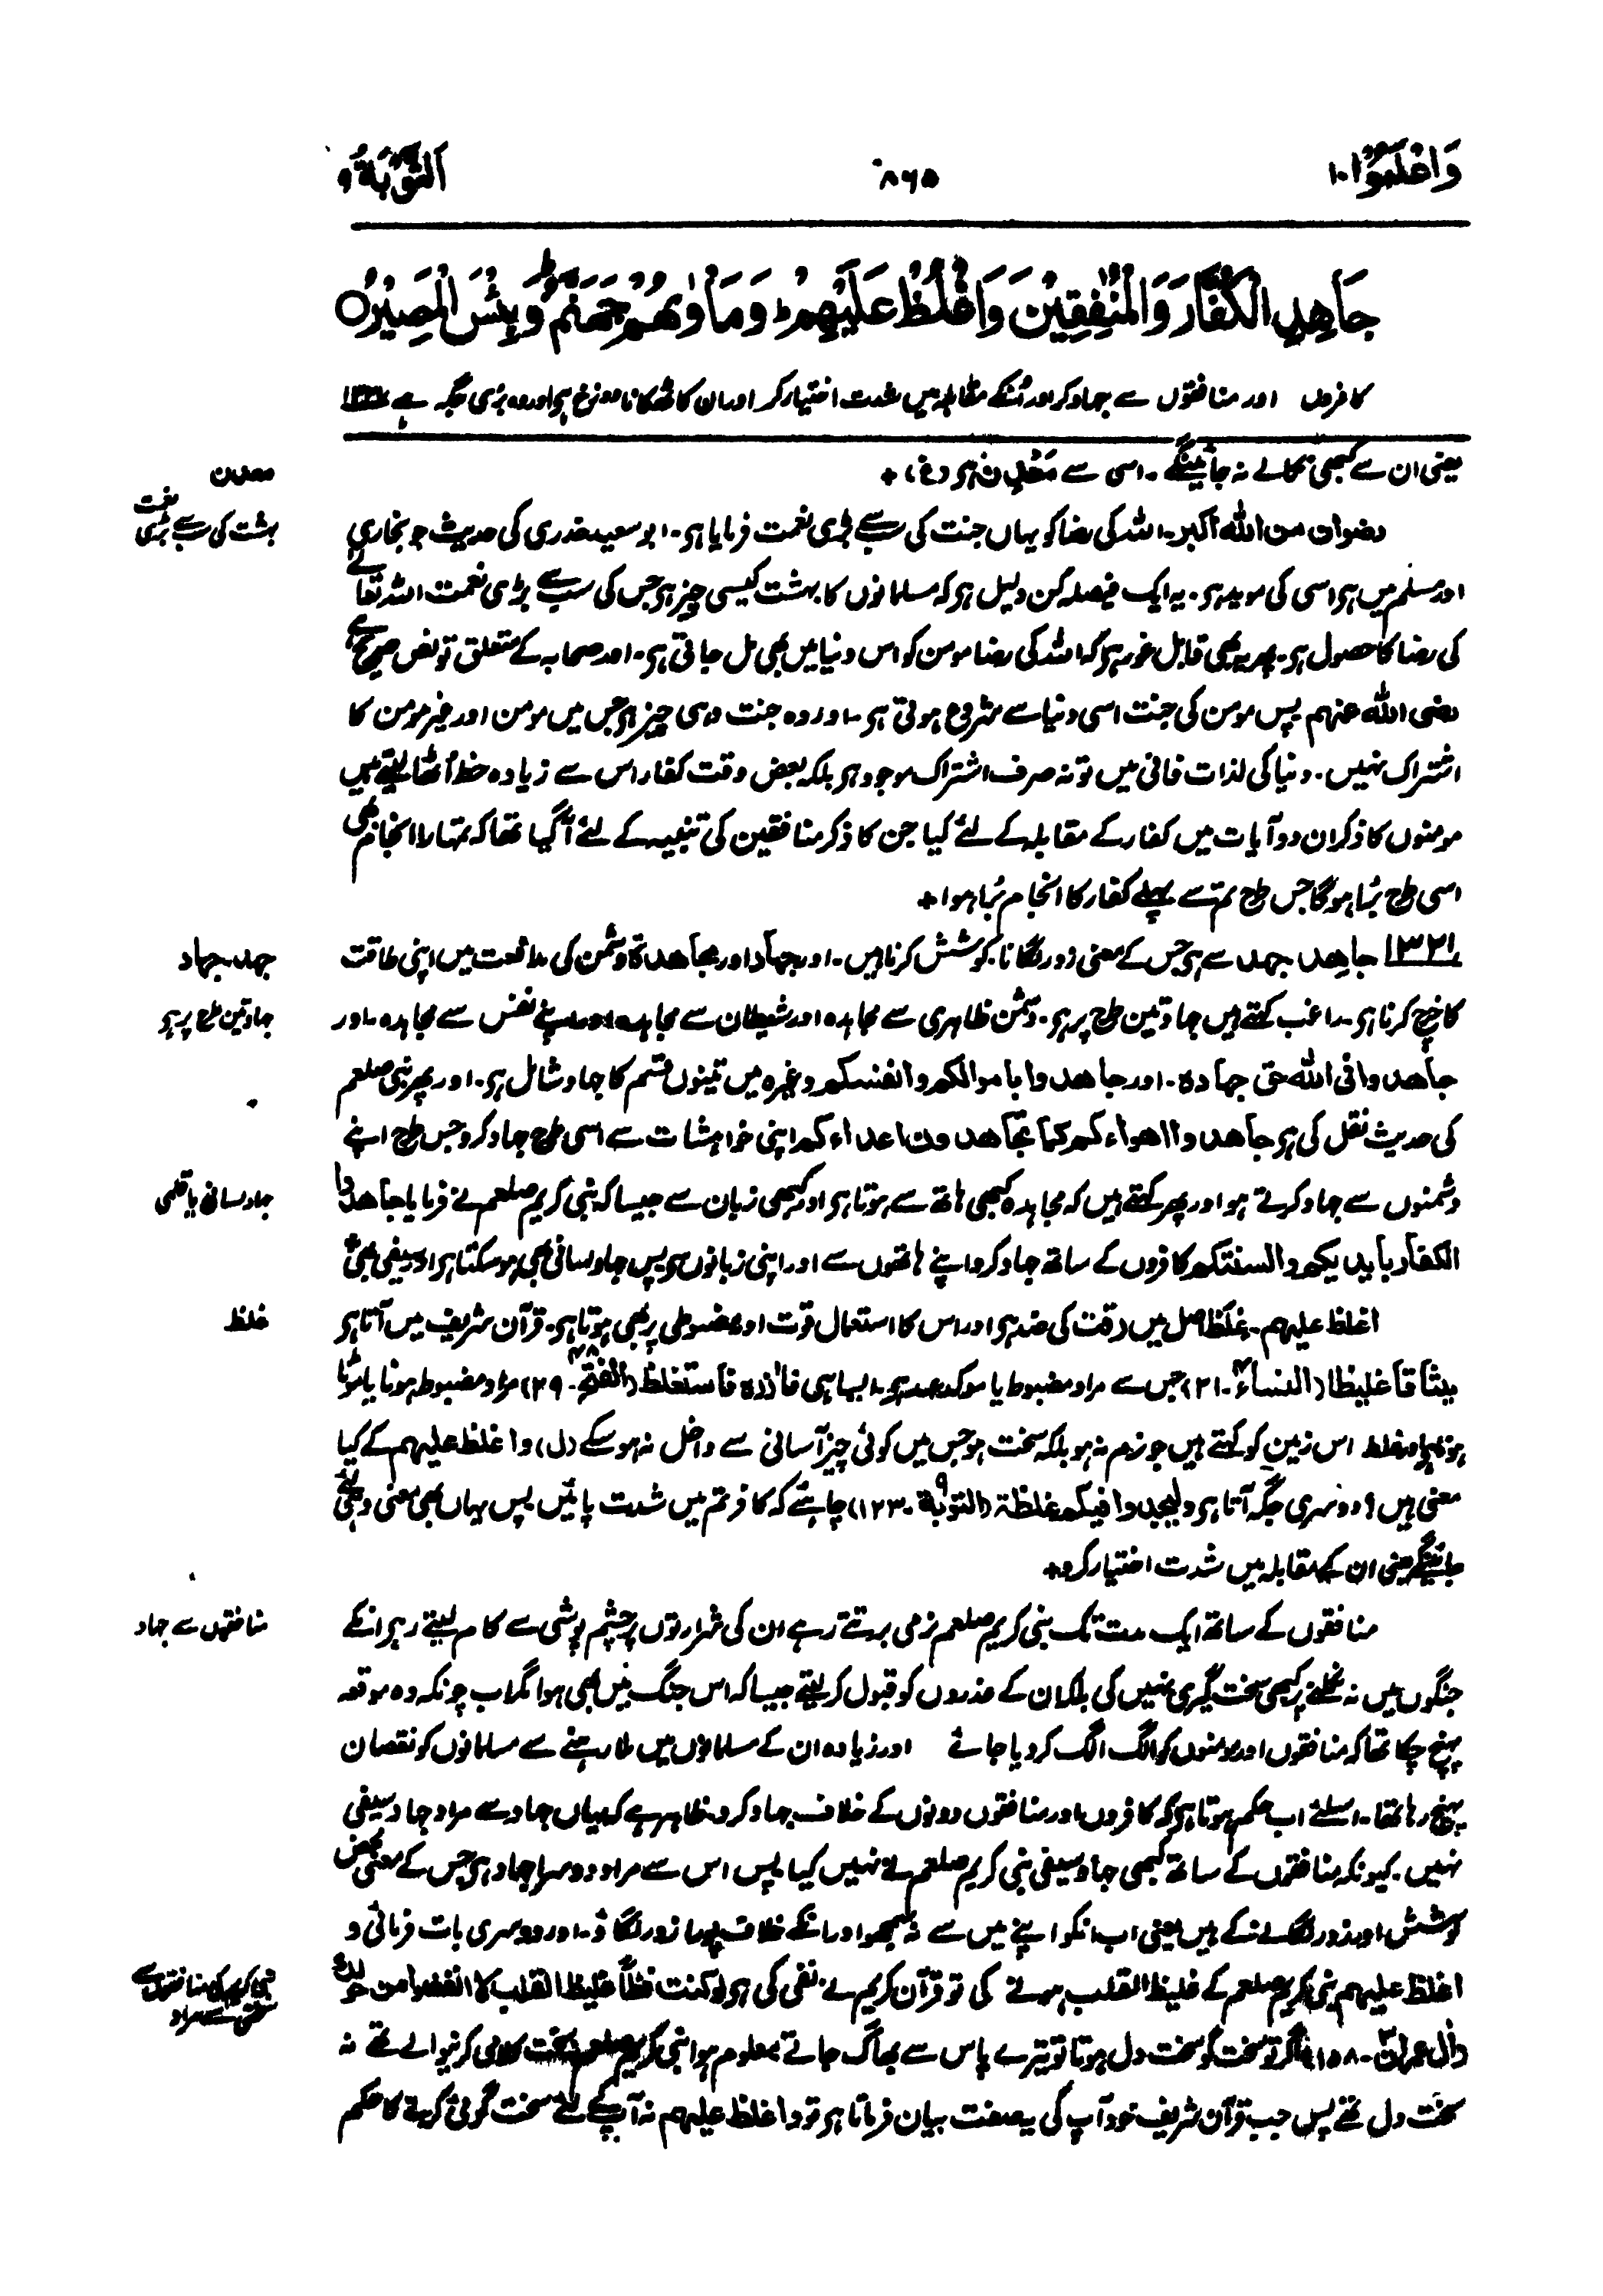 وَاعْلَمُوْٓا ١٠
٨٦٥
اَلتَّوْبَةُ ٩
جَاهِدِ الْكُفَّارَ وَالْمُنٰفِقِيْنَ وَاغْلُظْ عَلَيْهِمْ ؕ وَمَاْوٰىهُمْ جَهَنَّمُ ؕ وَبِئْسَ الْمَصِيْرُ ○
کافروں اور منافقوں سے جہاد کر اور اُنکے مقابلہ میں شدت اختیار کر اور ان کا ٹھکانا دوزخ ہو اور وہ بُری جگہ ہے
یعنی ان سے کبھی نکالے نہ جائینگے۔ اسی سے مَعْدِن ہو (غ) +
معدن
رضوان من اللہ اکبر۔ اللہ کی رضا کو یہاں جنت کی سب سے بڑی نعمت فرمایا ہو۔ ابوسعید خدری کی حدیث جو بخاری
بہشت کی سب سے بڑی نعمت
اور مسلم میں ہو اسی کی موید ہو۔ یہ ایک فیصلہ کن دلیل ہو کہ مسلمانوں کا بہشت کیسی چیز ہو جس کی سب سے بڑی نعمت اللہ تعالےٰ
کی رضا کا حصول ہو۔ پھر یہ بھی قابل غور ہو کہ اللہ کی رضا مومن کو اس دنیا میں بھی مل جاتی ہو۔ اور صحابہ کے متعلق تو نص صریح ہے
رضی اللہ عنہم پس مومن کی جنت اسی دنیا سے شروع ہوتی ہو۔ اور وہ جنت وہی چیز ہو جس میں مومن اور غیر مومن کا
اشتراک نہیں۔ دنیا کی لذات فانی میں تو نہ صرف اشتراک موجود ہو بلکہ بعض وقت کفار اس سے زیادہ حظ اُٹھا لیتے ہیں
مومنوں کا ذکر ان دو آیات میں کفار کے مقابلہ کے لئے کیا جن کا ذکر منافقین کی تنبیہ کے لئے آگیا تھا کہ تمہارا انجام بھی
اسی طرح بُرا ہوگا جس طرح تم سے پہلے کفار کا انجام بُرا ہوا +
١٣٢١ جاھد جہد سے ہو جس کے معنی زور لگانا۔ کوشش کرنا ہیں۔ اور جہاد اور مجاھدۃ دشمن کی مدافعت میں اپنی طاقت
جہد۔ جہاد
کا خرچ کرنا ہو۔ راغب کہتے ہیں جہاد تین طرح پر ہو۔ دشمن ظاہری سے مجاہدہ اور شیطان سے مجاہدہ اور اپنے نفس سے مجاہدہ۔ اور
جہاد تین طرح پر ہو
جاھدوا فی اللہ حق جھادہ۔ اور جاھدوا باموالکم وانفسکم وغیرہ میں تینوں قسم کا جہاد شامل ہو۔ اور پھر نبی صلعم
کی حدیث نقل کی ہو جاھدوا اھواءکم کما تجاھدون اعداءکم اپنی خواہشات سے اسی طرح جہاد کرو جس طرح اپنے
دشمنوں سے جہاد کرتے ہو اور پھر کہتے ہیں کہ مجاہدہ کبھی ہاتھ سے ہوتا ہو اور کبھی زبان سے جیسا کہ نبی کریم صلعم نے فرمایا جاھدوا
جہاد لسانی یا قلمی
الکفار بایدیکم والسنتکم کافروں کے ساتھ جہاد کرو اپنے ہاتھوں سے اور اپنی زبانوں سے پس جہاد لسانی بھی ہو سکتا ہو اور سیفی بھی +
اغلظ علیہم۔ غِلظ اصل میں رقت کی ضد ہو اور اس کا استعمال قوت اور مضبوطی پر بھی ہوتا ہو۔ قرآن شریف میں آتا ہو
غلظ
میثاقا غلیظا (النساء۴۔ ٢١) جس سے مراد مضبوط یا موکد عہد ہو۔ ایسا ہی فاٰزرہ فاستغلظ (الفتح۴۸۔ ٢٩) مراد مضبوط ہونا یا موٹا
ہونا ہو اور غلظ اس زمین کو کہتے ہیں جو نرم نہ ہو بلکہ سخت ہو جس میں کوئی چیز آسانی سے داخل نہ ہو سکے (ل) واغلظ علیہم کے کیا
معنی ہیں؟ دوسری جگہ آتا ہو ولیجدوا فیکم غلظۃ (التوبۃ۹۔ ١٢٣) چاہئے کہ کافر تم میں شدت پائیں۔ پس یہاں بھی معنی وہی لئے
جائینگے یعنی ان کے مقابلہ میں شدت اختیار کرو +
منافقوں کے ساتھ ایک مدت تک نبی کریم صلعم نرمی برتتے رہے ان کی شرارتوں پر چشم پوشی سے کام لیتے رہو انکے
منافقوں سے جہاد
جنگوں میں نہ نکلنے پر کبھی سخت گیری نہیں کی بلکہ ان کے عذروں کو قبول کر لیتے جیسا کہ اس جنگ میں بھی ہوا مگر اب چونکہ وہ موقعہ
پہنچ چکا تھا کہ منافقوں اور مومنوں کو الگ الگ کر دیا جائے اور زیادہ ان کے مسلمانوں میں ملا رہنے سے مسلمانوں کو نقصان
پہنچ رہا تھا۔ اسلئے اب حکم ہوتا ہو کہ کافروں اور منافقوں دونوں کے خلاف جہاد کرو۔ ظاہر ہے کہ یہاں جہاد سے مراد جہاد سیفی
نہیں۔ کیونکہ منافقوں کے ساتھ کبھی جہاد سیفی نبی کریم صلعم نے نہیں کیا پس اس سے مراد دوسرا جہاد ہو جس کے معنی محض
کوشش اور زور لگانے کے ہیں یعنی اب انکو اپنے میں سے نہ سمجھو اور انکے خلاف پورا زور لگاؤ۔ اور دوسری بات فرمائی و
اغلظ علیہم نبی کریم صلعم کے غلیظ القلب ہونے کی تو قرآن کریم نے نفی کی ہو لو کنت فظاً غلیظ القلب لا انفضوا من حولک
نبی کریم کی منافقوں سے سختی سے مراد
(اٰل عمران۔ ١٥٨) اگر تو سخت گو سخت دل ہوتا تو تیرے پاس سے بھاگ جاتے معلوم ہوا نبی کریم صلعم نہ سخت کلامی کرنیوالے تھے نہ
سخت دل تھے پس جب قرآن شریف خود آپ کی یہ صفت بیان فرماتا ہو تو واغلظ علیہم نہ آپ کے لئے سخت گوئی کرنے کا حکم